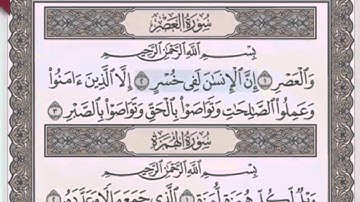 سُورَةُ العَصْرِ
بِسْمِ اللَّهِ الرَّحْمَٰنِ الرَّحِيمِ
وَالْعَصْرِ ١ إِنَّ الْإِنسَانَ لَفِي خُسْرٍ ٢ إِلَّا الَّذِينَ ءَامَنُوا
وَعَمِلُوا الصَّالِحَاتِ وَتَوَاصَوْا بِالْحَقِّ وَتَوَاصَوْا بِالصَّبْرِ ٣
سُورَةُ الهُمَزَةِ
بِسْمِ اللَّهِ الرَّحْمَٰنِ الرَّحِيمِ
وَيْلٌ لِّكُلِّ هُمَزَةٍ لُّمَزَةٍ ١ الَّذِي جَمَعَ مَالًا وَعَدَّدَهُ ٢